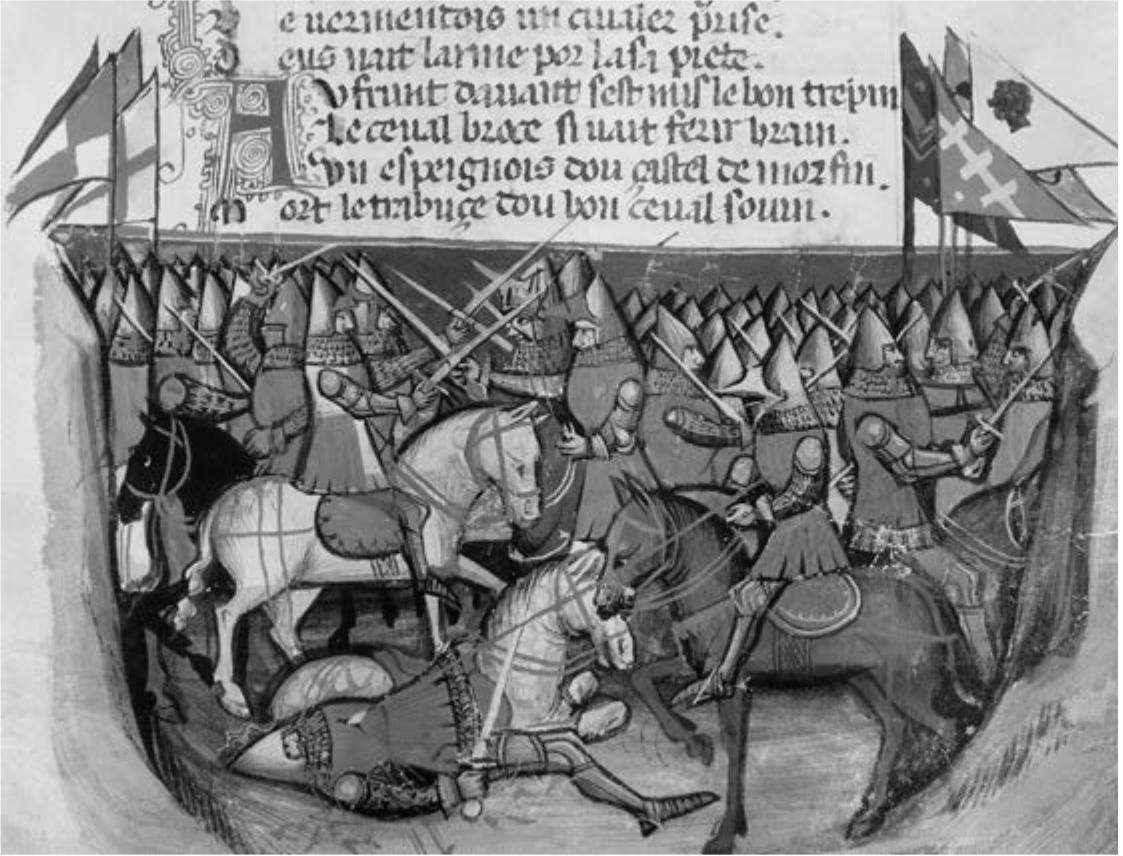 D e uermentois un ciualer prise.
D eus uait larme por lasa piete.
A v frunt dauant sest mis le bon trepin
Le ceual broce si uait ferir brain.
Vn espeignois dou çastel de morfin.
M ort le trabuçe dou bon ceual souin.